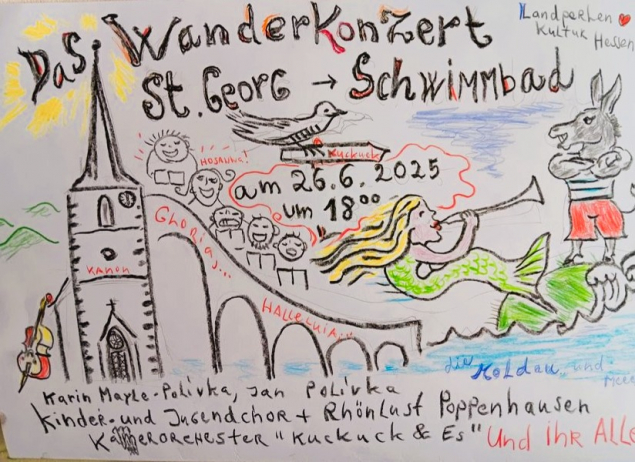 Landperlen
Kultur Hessen
Das Wanderkonzert
St. Georg → Schwimmbad
Kuckuck
HOSANNA!
am 26.6.2025
um 18⁰⁰
GLORIA,...
KANON
HALLELUIA...
die Moldau und
Karin Mayle-Polivka, Jan Polivka
Kinder- und Jugendchor + RhönLust Poppenhausen
Kammerorchester "Kuckuck & Es" Und ihr ALLE